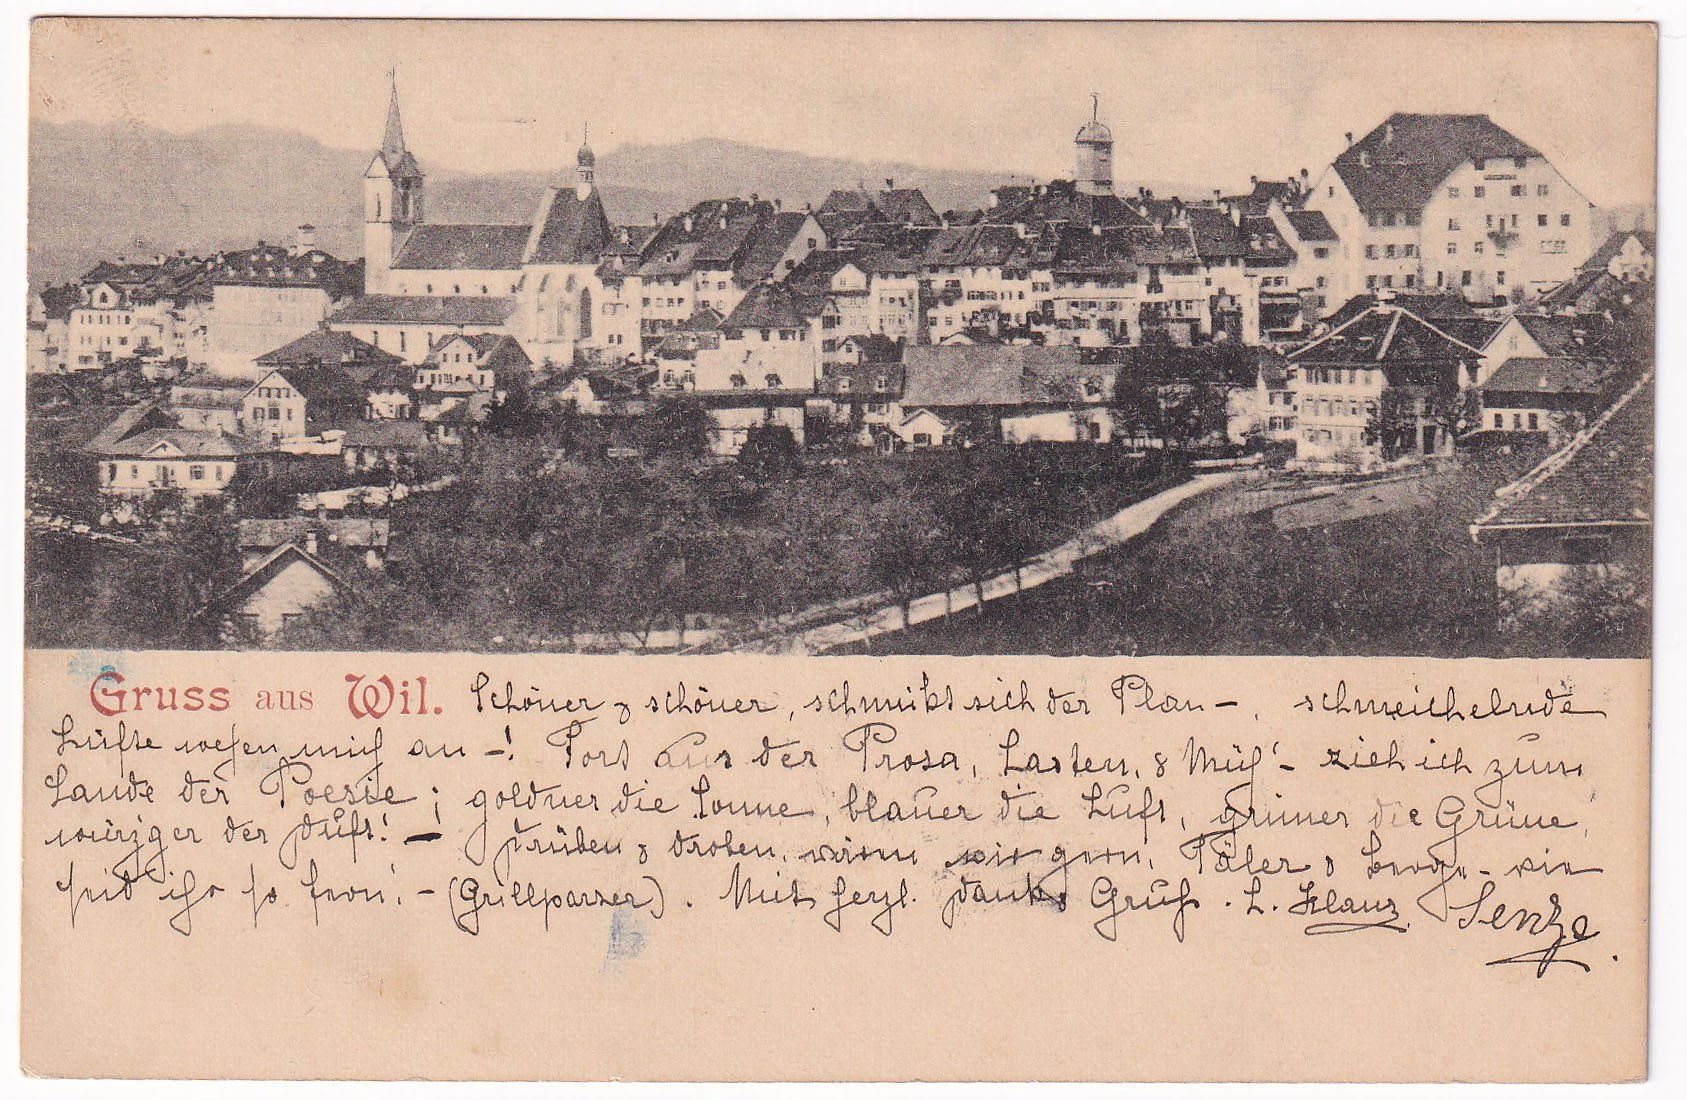 Gruss aus Wil. Schöner & schöner, schmükt sich der Plan –, schmeichelnde
Lüfte wehen mich an –! Fort aus der Prosa, Lasten, & Müh' – zieh ich zum
Lande der Poesie; goldner die Sonne, blauer die Luft, grüner die Grüne,
würziger der Duft! – Drüben & droben, wären wir gern, Täler & Berge – wie
seid ihr so fern! – (Grillparzer). Mit herzl. Dank & Gruß. L.